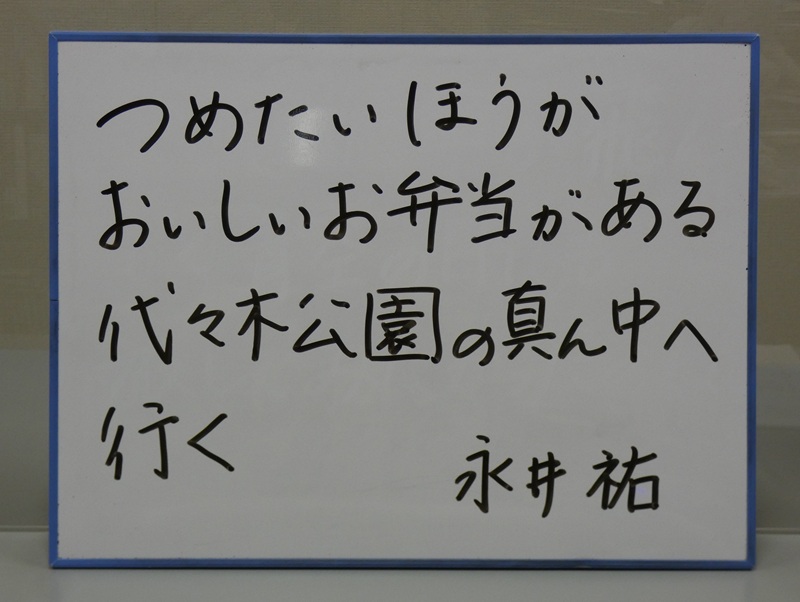 つめたいほうが
おいしいお弁当がある
代々木公園の真ん中へ
行く
永井祐